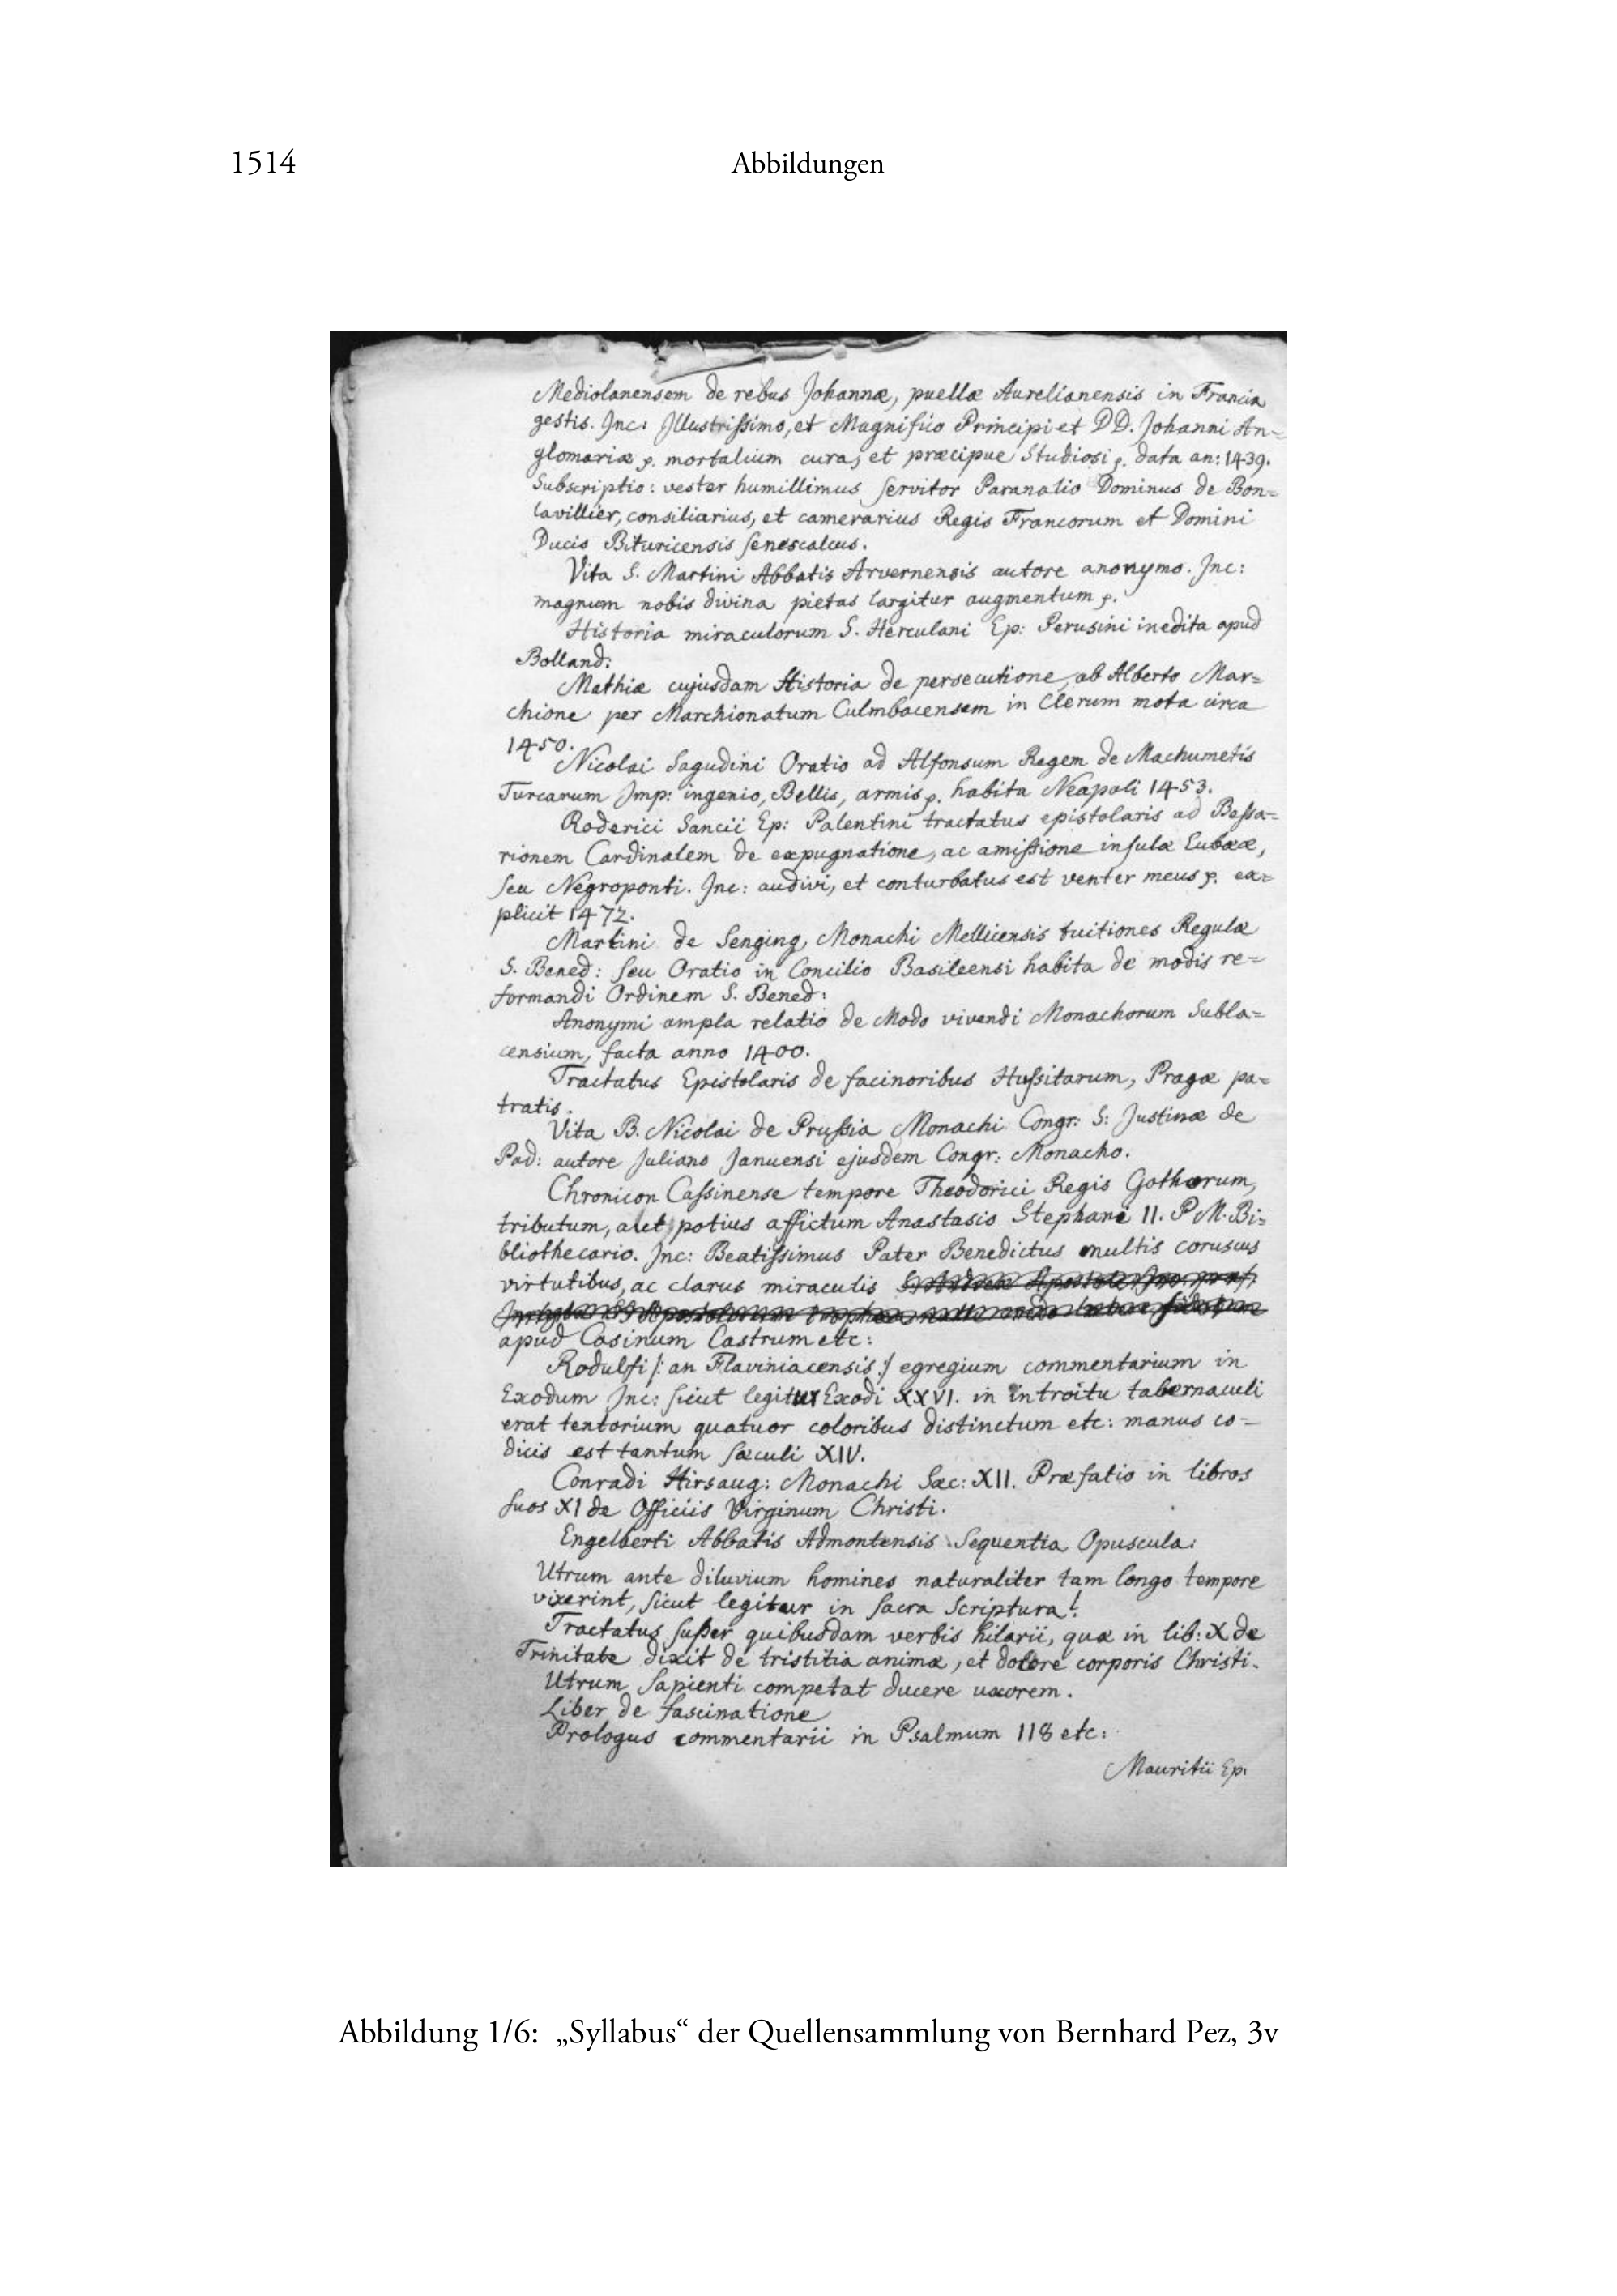 1514
Abbildungen
Mediolanensem de rebus Johannæ, puellæ Aurelianensis in Francia
gestis. Inc: Illustrissimo, et Magnifico Principi et DD. Johanni An-
glomariæ p. mortalium cura, et præcipue Studiosi p. data an: 1439.
Subscriptio: vester humillimus servitor Paranalio Dominus de Bon-
lavillier, consiliarius, et camerarius Regis Francorum et Domini
Ducis Bituricensis senescalcus.
Vita S. Martini Abbatis Arvernensis autore anonymo. Inc:
magnum nobis divina pietas largitur augmentum p.
Historia miraculorum S. Herculani Ep: Perusini inedita apud
Bolland:
Mathiæ cujusdam Historia de persecutione, ab Alberto Mar=
chione per Marchionatum Culmbacensem in Clerum mota circa
1450.
Nicolai Sagudini Oratio ad Alfonsum Regem de Machumetis
Turcarum Imp: ingenio, Bellis, armis p. habita Neapoli 1453.
Roderici Sancii Ep: Palentini tractatus epistolaris ad Bessa=
rionem Cardinalem de expugnatione, ac amissione insulæ Eubææ,
seu Negroponti. Inc: audivi, et conturbatus est venter meus p. ex=
plicit 1472.
Martini de Senging Monachi Mellicensis tuitiones Regulæ
S. Bened: seu Oratio in Concilio Basileensi habita de modis re=
formandi Ordinem S. Bened:
Anonymi ampla relatio de Modo vivendi Monachorum Subla=
censium, facta anno 1400.
Tractatus Epistolaris de facinoribus Hussitarum, Pragæ pa=
tratis.
Vita B. Nicolai de Prussia Monachi Congr: S: Justinæ de
Pad: autore Juliano Januensi ejusdem Congr: Monacho.
Chronicon Cassinense tempore Theodorici Regis Gothorum,
tributum, aut potius affictum Anastasio Stephani II. P.M. Bi=
bliothecario. Inc: Beatissimus Pater Benedictus multis coruscus
virtutibus, ac clarus miraculis
apud Casinum Castrum etc:
Rodulfi /: an Flaviniacensis :/ egregium commentarium in
Exodum Inc: sicut legitur Exodi XXVI. in introitu tabernaculi
erat tentorium quatuor coloribus distinctum etc: manus co-
dicis est tantum sæculi XIV.
Conradi Hirsaug: Monachi Sæc: XII. Præfatio in libros
suos XI de Officiis Virginum Christi.
Engelberti Abbatis Admontensis Sequentia Opuscula:
Utrum ante diluvium homines naturaliter tam longo tempore
vixerint, sicut legitur in sacra Scriptura!
Tractatus super quibusdam verbis hilarii, quæ in lib: X de
Trinitate dixit de tristitia animæ, et dolore corporis Christi.
Utrum Sapienti competat ducere uxorem.
Liber de fascinatione
Prologus commentarii in Psalmum 118 etc:
Mauritii Ep:
Abbildung 1/6: „Syllabus“ der Quellensammlung von Bernhard Pez, 3v